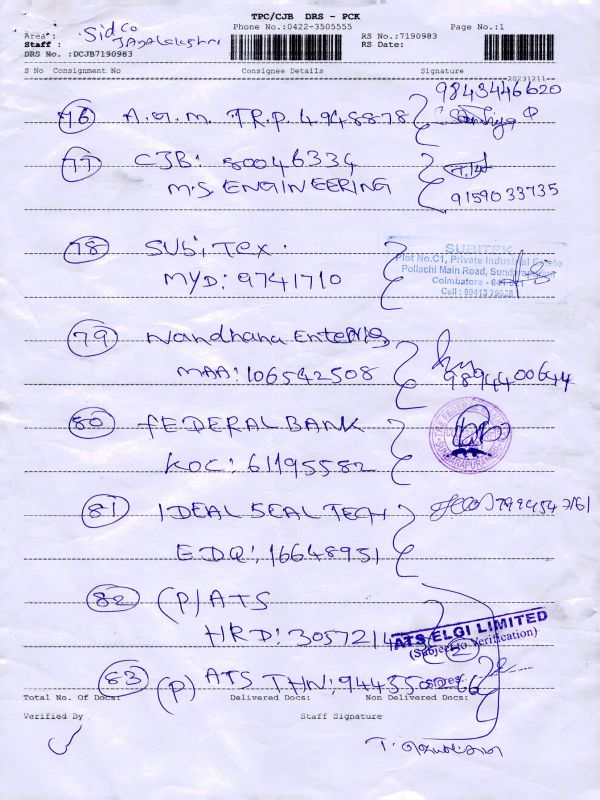 TPC/CJB DRS - PCK
Phone No.:0422-3505555 Page No.:1
Area : Sidco
Staff : JAYALakshmi
RS No.:7190983
RS Date:
DRS No. :DCJB7190983
S No Consignment No Consignee Details Signature
20231211
76 A.G.M. TRP. 4948878 9843446620
77 CJB: 80046334
M.S. ENGINEERING 9159033735
78 SUBITEX.
MYD: 9741710
SUBITEK
Plot No.C1, Private Industrial Estate
Pollachi Main Road, Sundarapuram
Coimbatore - 641 021
Cell : 99413 79028
79 Nandhana Enterpris
MAA: 106542508 9894400644
80 FEDERAL BANK
KOC: 61195582
81 IDEAL SEAL TECH
EDQ: 16648951
82 (P) ATS
HRD: 3057214
ATS ELGI LIMITED
(Subject to Verification)
83 (P) ATS THN: 94435
Stores
Total No. Of Docs: Delivered Docs: Non Delivered Docs:
Verified By Staff Signature